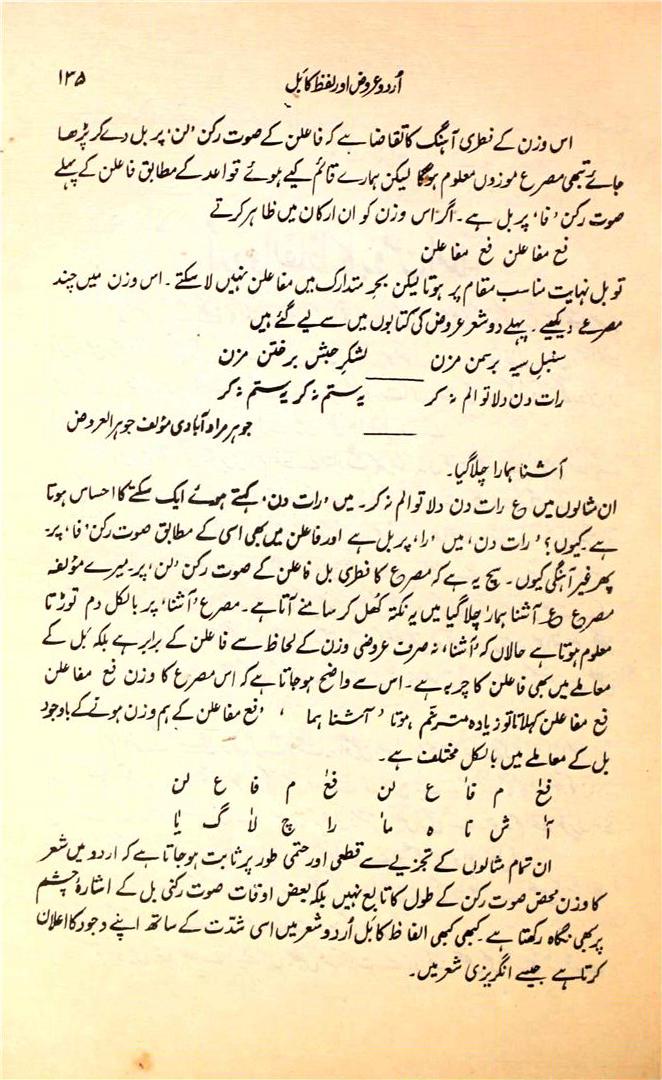 اُردو عروض اور لفظ کا بَل ۱۳۵
اس وزن کے فطری آہنگ کا تقاضا ہے کہ فاعلن کے صوت رکن 'لن' پر بل دے کر پڑھا
جائے تبھی مصرع موزوں معلوم ہوگا لیکن ہمارے قائم کیے ہوئے قواعد کے مطابق فاعلن کے پہلے
صوت رکن 'فا' پر بل ہے۔ اگر اس وزن کو ان ارکان میں ظاہر کرتے
فع مفاعلن فع مفاعلن
تو بل نہایت مناسب مقام پر ہوتا لیکن بحرِ متدارک میں مفاعلن نہیں لا سکتے۔ اس وزن میں چند
مصرعے دیکھیے۔ پہلے دو شعر عروض کی کتابوں میں سے لیے گئے ہیں
سنبلِ سیہ برسمن مزن لشکرِ حبش برختن مزن
رات دن دلا تو الم نہ کر یہ ستم نہ کر یہ ستم نہ کر
جوہر مراد آبادی مؤلف جوہر العروض
آشنا ہمارا چلا گیا۔
ان مثالوں میں ع رات دن دلا تو الم نہ کر۔ میں 'رات دن' کہتے ہوئے ایک سکتے کا احساس ہوتا
ہے۔ کیوں؟ 'رات دن' میں 'را' پر بل ہے اور فاعلن میں بھی اسی کے مطابق صوت رکن 'فا' پر۔
پھر غیر آہنگی کیوں۔ سچ یہ ہے کہ مصرع کا فطری بل فاعلن کے صوت رکن 'لن' پر۔ میرے مؤلفہ
مصرع ع آشنا ہمارا چلا گیا میں یہ نکتہ کھل کر سامنے آتا ہے۔ مصرع 'آشنا' پر بالکل دم توڑتا
معلوم ہوتا ہے حالاں کہ 'آشنا' نہ صرف عروضی وزن کے لحاظ سے فاعلن کے برابر ہے بلکہ بَل کے
معاملے میں بھی فاعلن کا چربہ ہے۔ اس سے واضح ہو جاتا ہے کہ اس مصرع کا وزن فع مفاعلن
فع مفاعلن کہلاتا تو زیادہ مترنم ہوتا 'آشنا ہما' 'فع مفاعلن کے ہم وزن ہونے کے باوجود
بل کے معاملے میں بالکل مختلف ہے۔
فع م فا ع لن فع م فا ع لن
آ ش نا ہ ما را چ لا گ یا
ان تمام مثالوں کے تجزیے سے قطعی اور حتمی طور پر ثابت ہو جاتا ہے کہ اردو میں شعر
کا وزن محض صوت رکن کے طول کا تابع نہیں بلکہ بعض اوقات صوت رکنی بل کے اشارۂ چشم
پر بھی نگاہ رکھتا ہے۔ کبھی کبھی الفاظ کا بَل اُردو شعر میں اسی شدّت کے ساتھ اپنے وجود کا اعلان
کرتا ہے جیسے انگریزی شعر میں۔